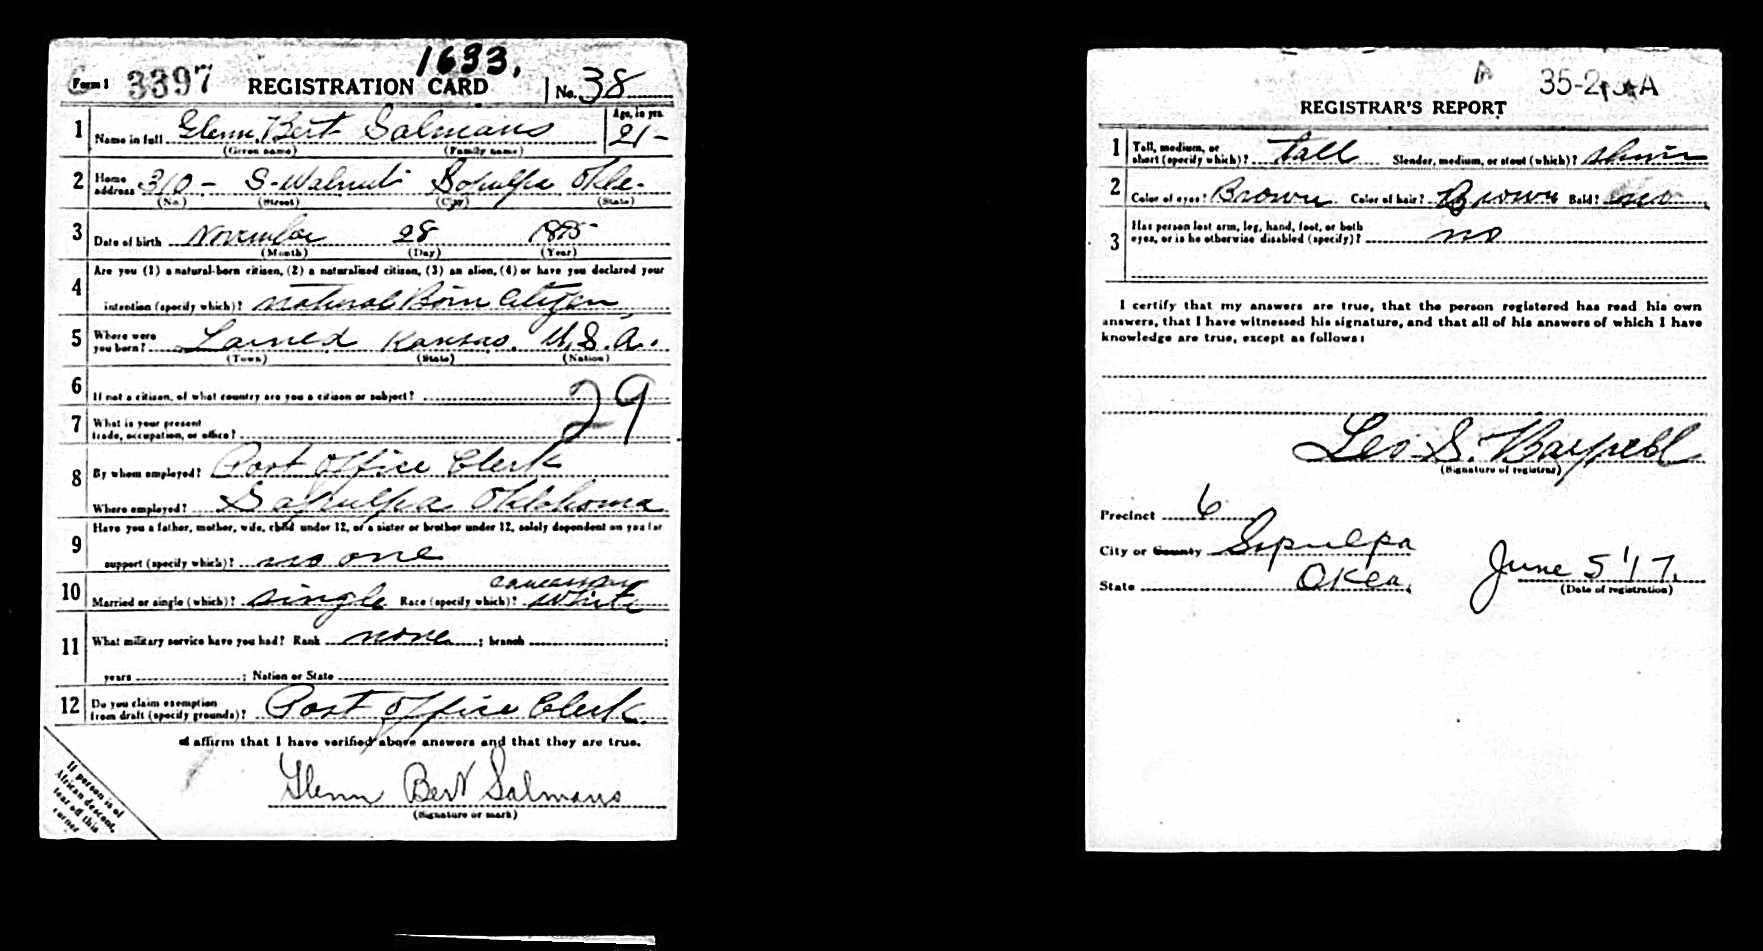 1633,
Form 1 3397 REGISTRATION CARD No. 38
1 Name in full Glenn Bert Salmans Age, in yrs. 21-
(Given name) (Family name)
2 Home address 310 - S-Walnut Sapulpa Okla-
(No.) (Street) (City) (State)
3 Date of birth November 28 1895
(Month) (Day) (Year)
4 Are you (1) a natural-born citizen, (2) a naturalized citizen, (3) an alien, (4) or have you declared your
intention (specify which)? natural Born Citizen
5 Where were you born? Larned Kansas. U.S.A.
(Town) (State) (Nation)
6 If not a citizen, of what country are you a citizen or subject?
29
7 What is your present
trade, occupation, or office?
8 By whom employed? Post Office Clerk
Where employed? Sapulpa Oklahoma
9 Have you a father, mother, wife, child under 12, or a sister or brother under 12, solely dependent on you for
support (specify which)? no one
caucasian
10 Married or single (which)? single Race (specify which)? white
11 What military service have you had? Rank none ; branch ;
years ; Nation or State
12 Do you claim exemption
from draft (specify grounds)? Post Office Clerk.
I affirm that I have verified above answers and that they are true.
Glenn Bert Salmans
(Signature or mark)
If person is of
African descent,
tear off this
corner
35-2 A
REGISTRAR'S REPORT
1 Tall, medium, or
short (specify which)? Tall Slender, medium, or stout (which)?
2 Color of eyes? Brown Color of hair? Brown Bald? no
3 Has person lost arm, leg, hand, foot, or both
eyes, or is he otherwise disabled (specify)? no
I certify that my answers are true, that the person registered has read his own
answers, that I have witnessed his signature, and that all of his answers of which I have
knowledge are true, except as follows:
Leo S.
(Signature of registrar)
Precinct 6
City or County Sapulpa
State Okla.
June 5 '17.
(Date of registration)